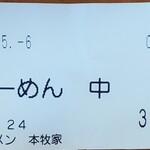 5.-6
ーめん 中
24
3
メン 本牧家